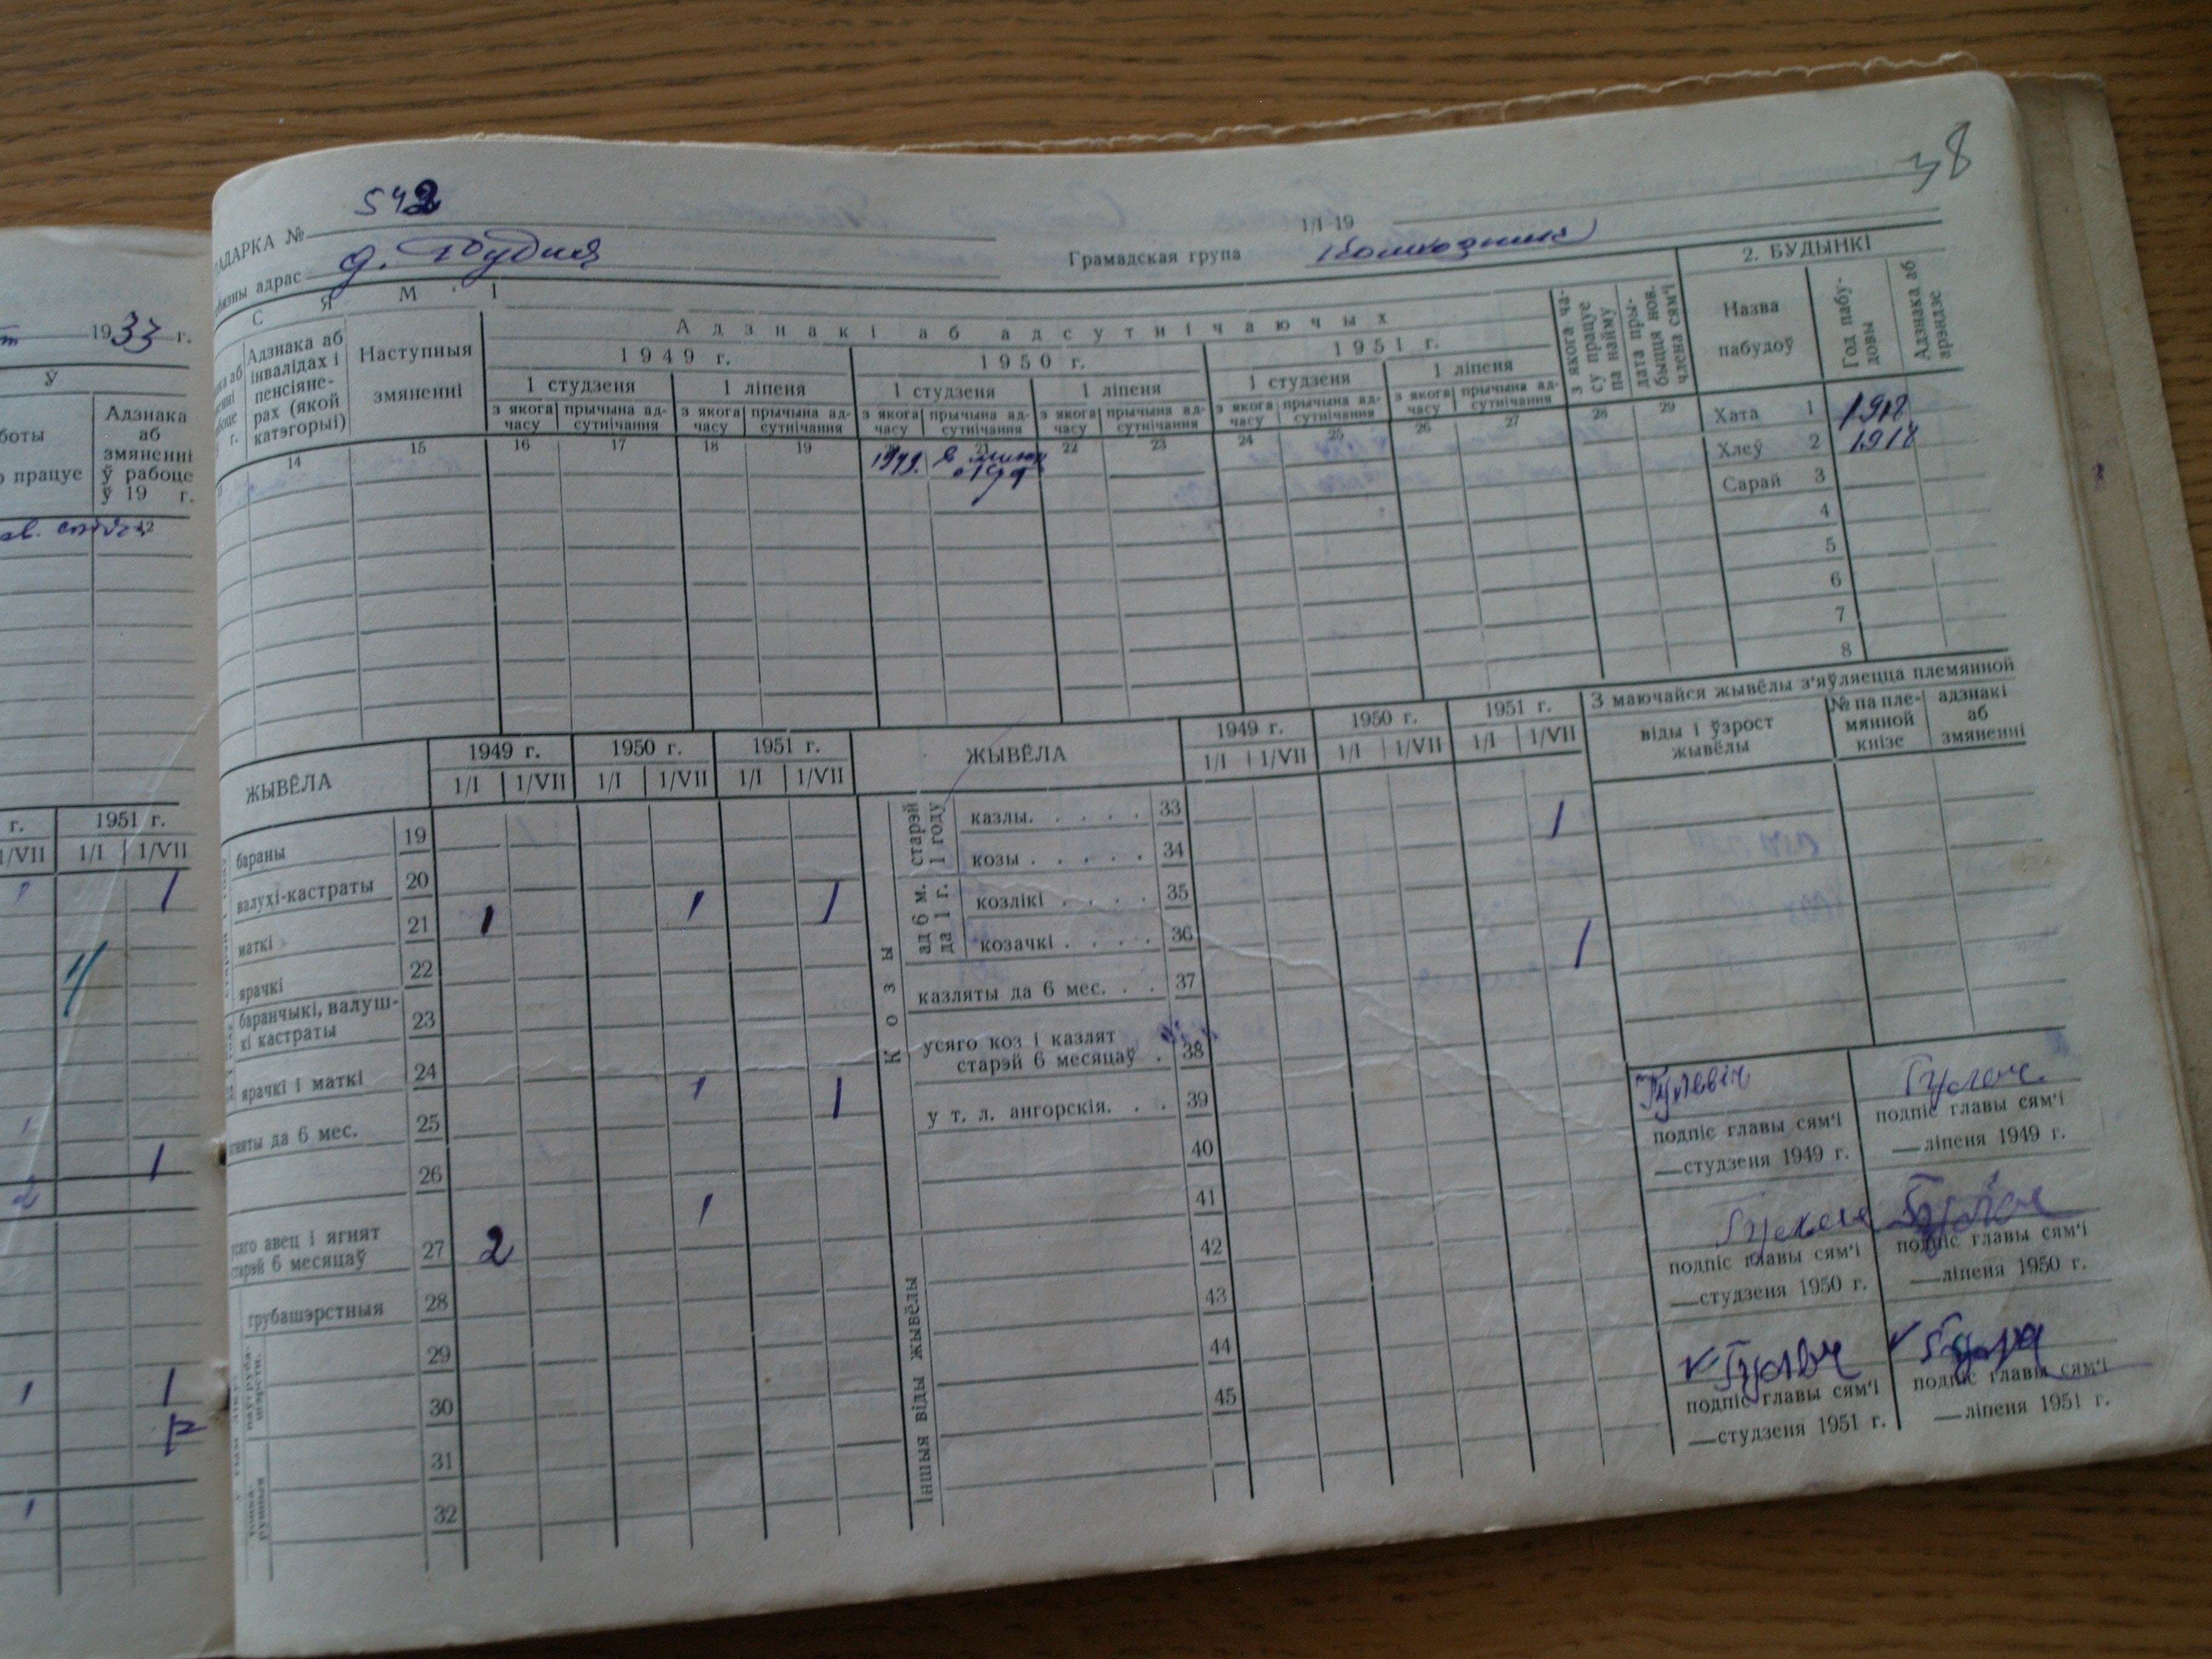 38
АДАРКА № 542
1/I 19
адрас д. Рудня
Грамадская група
1933 г.
С Я М ' І
2. БУДЫНКІ
Адзнака аб інвалідах і пенсіянерах (якой катэгорыі)
Наступныя змяненні
Адзнакі аб адсутнічаючых
1949 г.
1950 г.
1951 г.
1 студзеня
1 ліпеня
1 студзеня
1 ліпеня
1 студзеня
1 ліпеня
з якога часу
прычына адсутнічання
з якога часу
прычына адсутнічання
з якога часу
прычына адсутнічання
з якога часу
прычына адсутнічання
з якога часу
прычына адсутнічання
з якога часу
прычына адсутнічання
з якога часу працуе па найму
дата прыбыцця нов. члена сям'і
Назва пабудоў
Год пабудовы
Адзнака аб арэндзе
14 15 16 17 18 19 21 22 23 24 25 26 27 28 29
1949.
Хата 1 1918
Хлеў 2 1918
Сарай 3
4
5
6
7
8
Ў
боты
працуе
Адзнака аб змяненні ў рабоце ў 19 г.
г. 1951 г.
1/VII 1/I 1/VII
1 1
1
2 1
1 1
1
ЖЫВЁЛА
1949 г. 1950 г. 1951 г.
1/I 1/VII 1/I 1/VII 1/I 1/VII
бараны 19
валухі-кастраты 20
маткі 21 1 1 1
ярачкі 22
баранчыкі, валушкі кастраты 23
ярачкі і маткі 24
да 6 мес. 25 1 1
26
усяго авец і ягнят старэй 6 месяцаў 27 2 1
грубашэрстныя 28
29
30
31
32
ЖЫВЁЛА
1949 г. 1950 г. 1951 г.
1/I 1/VII 1/I 1/VII 1/I 1/VII
Козы
старэй 1 году
казлы. . . . . 33 1
козы . . . . . 34
ад 6 м. да 1 г.
козлікі . . . . 35
козачкі . . . . 36 1
казляты да 6 мес. . . 37
усяго коз і казлят старэй 6 месяцаў . 38
у т. л. ангорскія. . . 39
40
Іншыя віды жывёлы
41
42
43
44
45
З маючайся жывёлы з'яўляецца племянной
віды і ўзрост жывёлы
№ па племянной кнізе
адзнакі аб змяненні
Гулевіч
подпіс главы сям'і
—студзеня 1949 г.
подпіс главы сям'і
—ліпеня 1949 г.
подпіс главы сям'і
—студзеня 1950 г.
подпіс главы сям'і
—ліпеня 1950 г.
подпіс главы сям'і
—студзеня 1951 г.
подпіс главы сям'і
—ліпеня 1951 г.